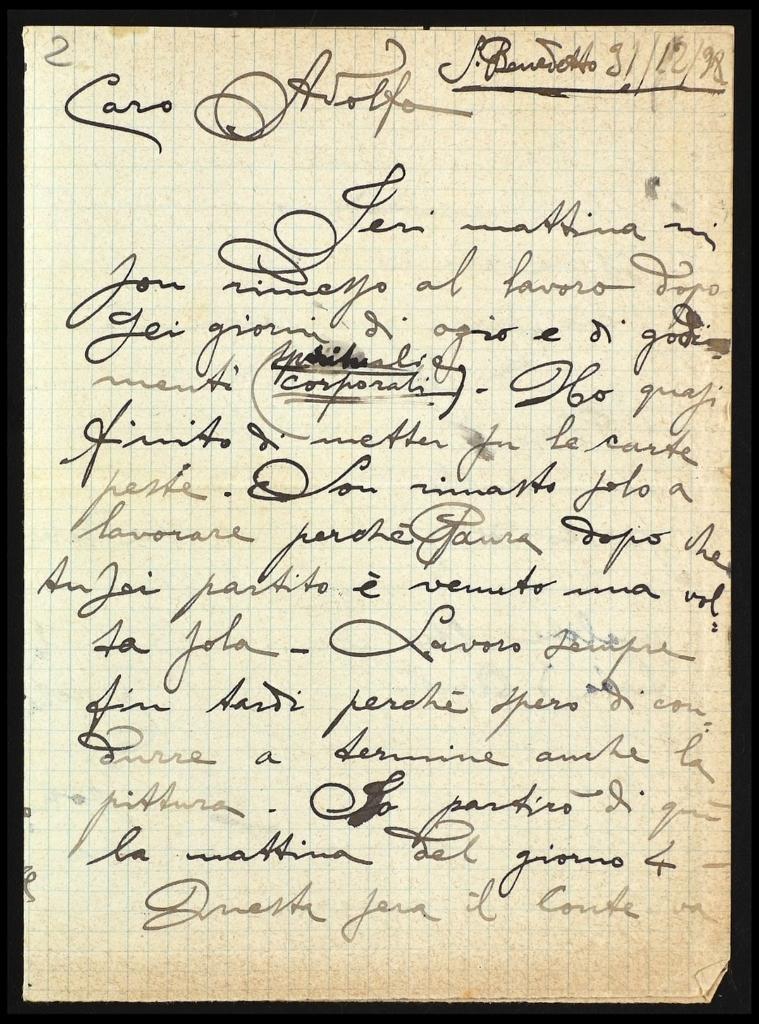 2
S. Benedetto 31/12/98
Caro Adolfo
Ieri mattina mi
son rimesso al lavoro dopo
sei giorni di ozio e di godi=
menti (spirituali e
corporali) - Ho quasi
finito di metter su le carte
peste. Son rimasto solo a
lavorare perchè Laura dopo che
tu sei partito è venuto una vol=
ta sola - Lavoro sempre
fin tardi perchè spero di con=
durre a termine anche la
pittura. Io partirò di qui
la mattina del giorno 4 -
Questa sera il Conte va